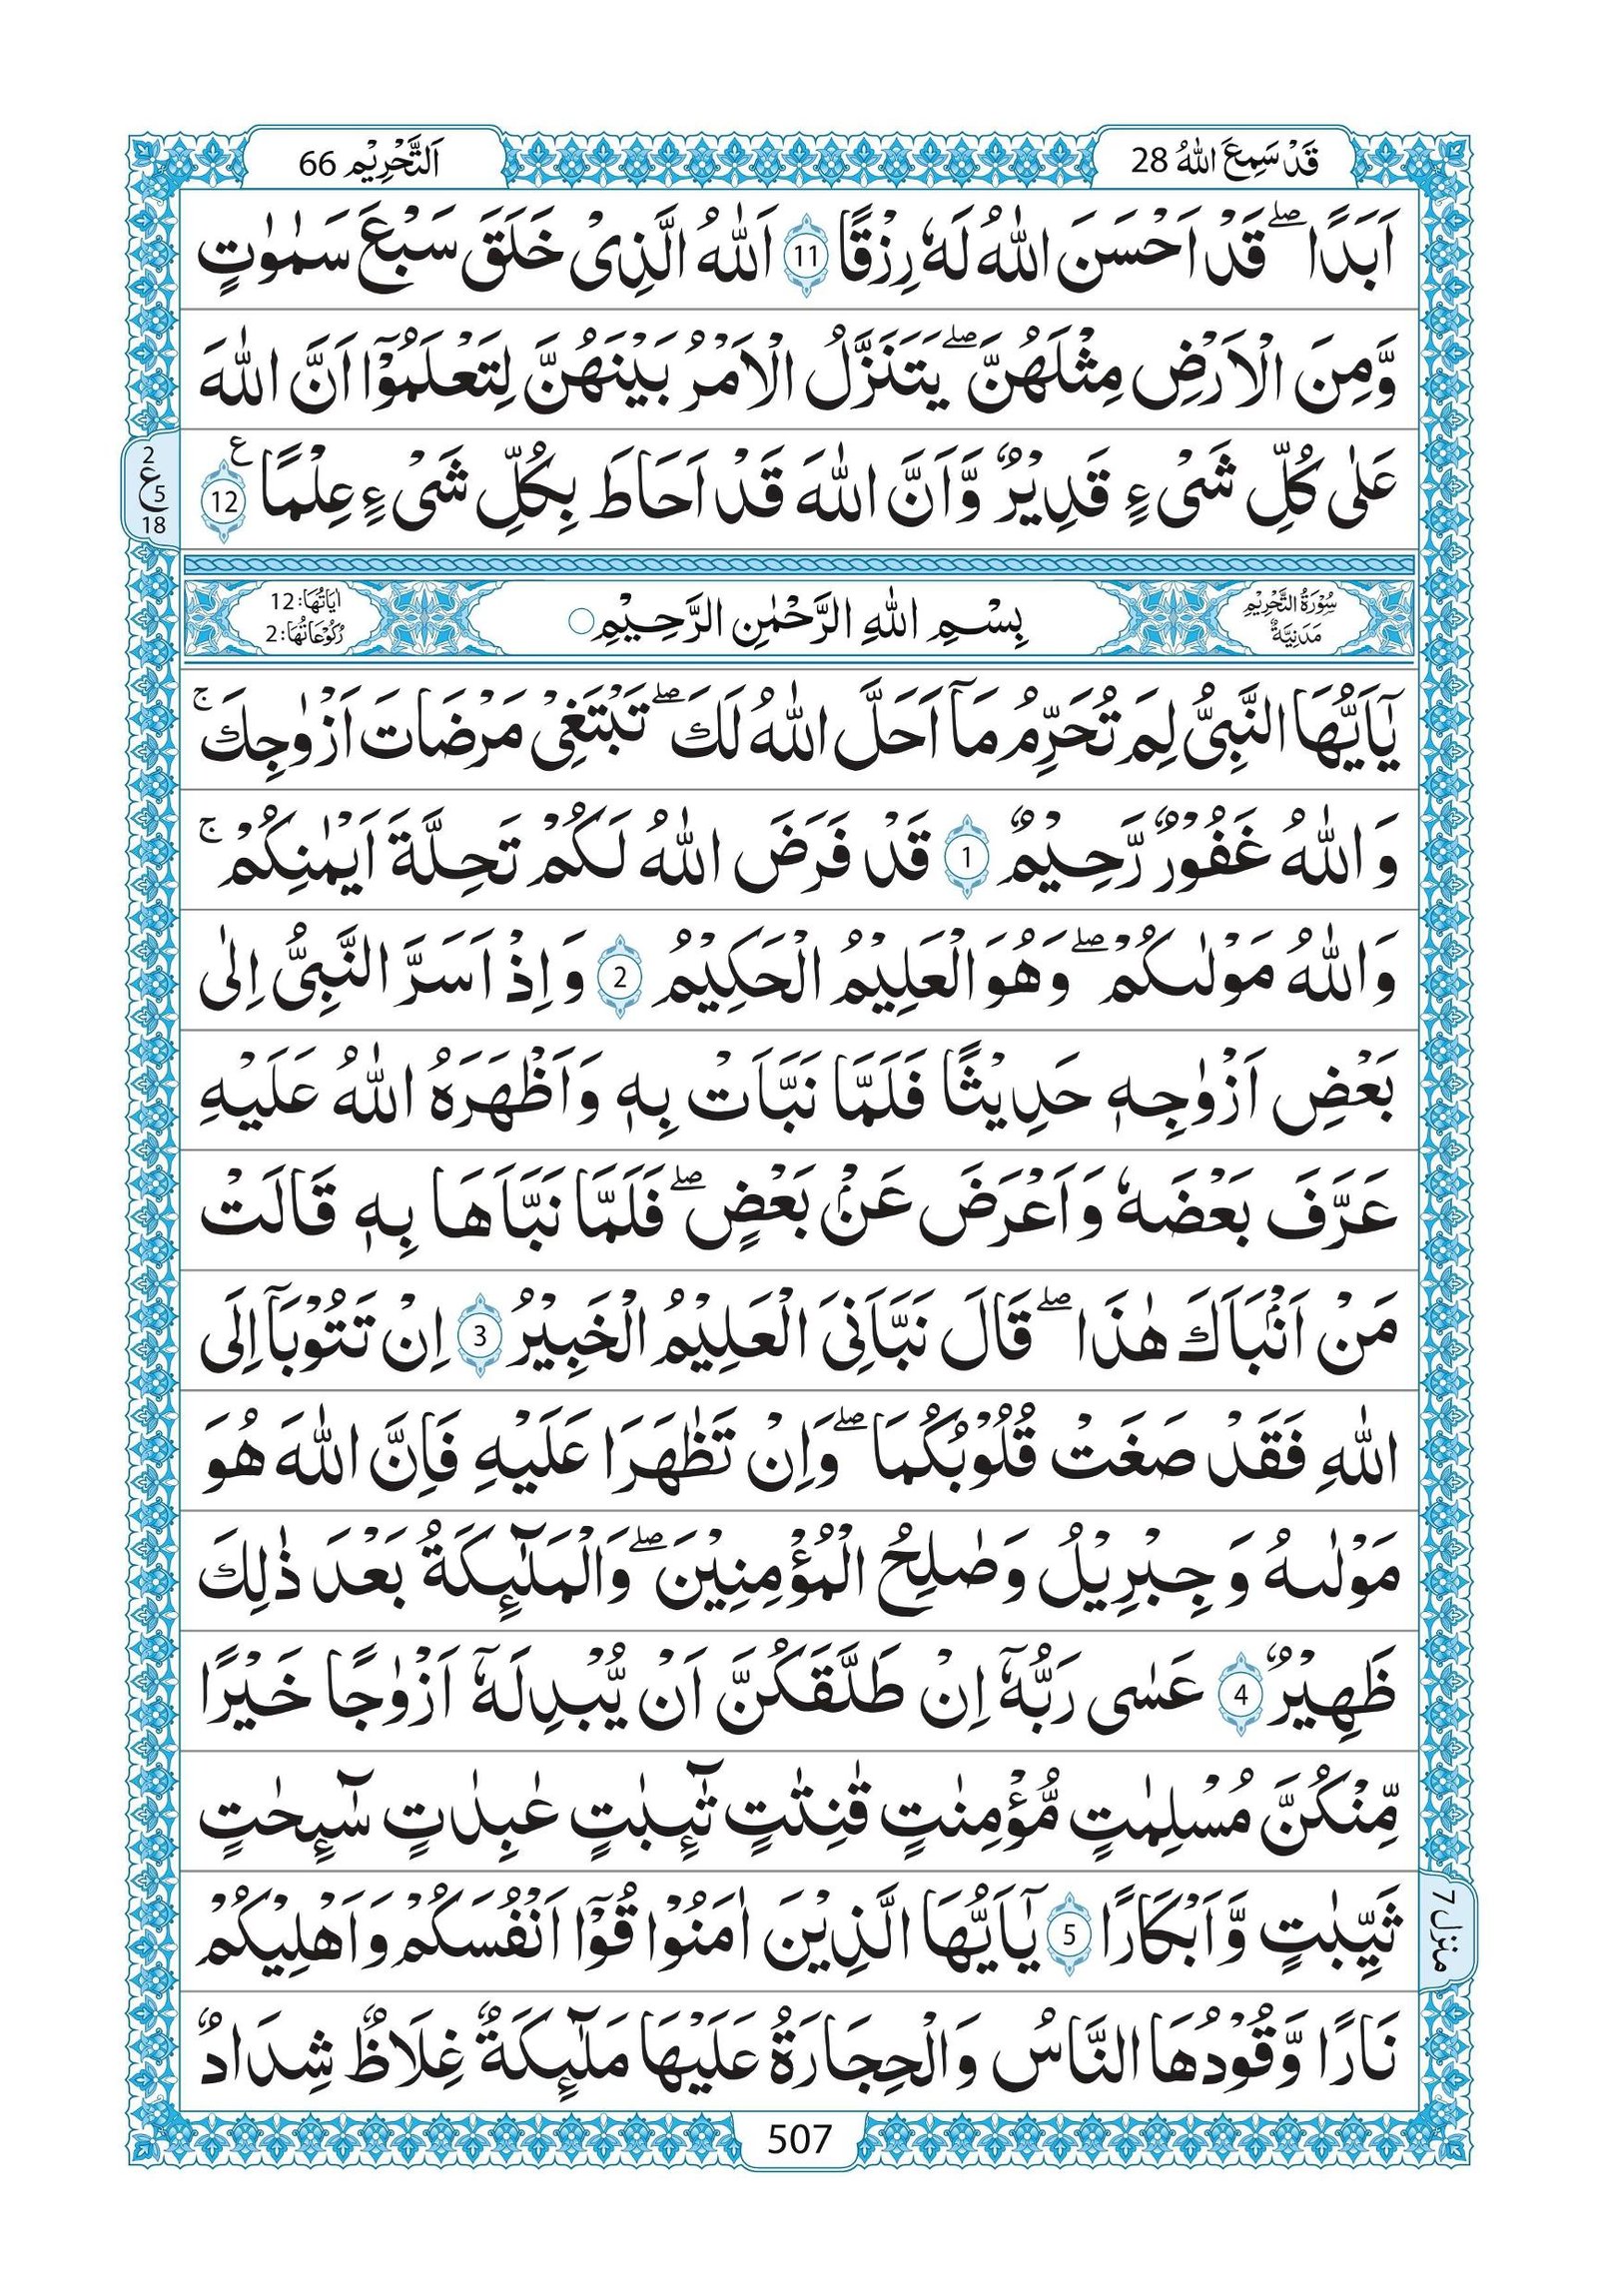 اَلتَّحْرِيْم 66
قَدْ سَمِعَ اللهُ 28
اَبَدًا ۖ قَدْ اَحْسَنَ اللّٰهُ لَهٗ رِزْقًا 11 اَللّٰهُ الَّذِيْ خَلَقَ سَبْعَ سَمٰوٰتٍ
وَّمِنَ الْاَرْضِ مِثْلَهُنَّ ۖ يَتَنَزَّلُ الْاَمْرُ بَيْنَهُنَّ لِتَعْلَمُوْٓا اَنَّ اللّٰهَ
عَلٰى كُلِّ شَىْءٍ قَدِيْرٌ وَّاَنَّ اللّٰهَ قَدْ اَحَاطَ بِكُلِّ شَىْءٍ عِلْمًا 12 ع
2
ع 5
18
سُوْرَةُ التَّحْرِيْمِ
مَدَنِيَّةٌ
بِسْمِ اللّٰهِ الرَّحْمٰنِ الرَّحِيْمِ
اٰيَاتُهَا: 12
رُكُوْعَاتُهَا: 2
يٰٓاَيُّهَا النَّبِىُّ لِمَ تُحَرِّمُ مَآ اَحَلَّ اللّٰهُ لَكَ ۖ تَبْتَغِىْ مَرْضَاتَ اَزْوٰجِكَ ۚ
وَاللّٰهُ غَفُوْرٌ رَّحِيْمٌ 1 قَدْ فَرَضَ اللّٰهُ لَكُمْ تَحِلَّةَ اَيْمٰنِكُمْ ۚ
وَاللّٰهُ مَوْلٰىكُمْ ۖ وَهُوَ الْعَلِيْمُ الْحَكِيْمُ 2 وَاِذْ اَسَرَّ النَّبِىُّ اِلٰى
بَعْضِ اَزْوٰجِهٖ حَدِيْثًا فَلَمَّا نَبَّاَتْ بِهٖ وَاَظْهَرَهُ اللّٰهُ عَلَيْهِ
عَرَّفَ بَعْضَهٗ وَاَعْرَضَ عَنْۢ بَعْضٍ ۖ فَلَمَّا نَبَّاَهَا بِهٖ قَالَتْ
مَنْ اَنْۢبَاَكَ هٰذَا ۖ قَالَ نَبَّاَنِىَ الْعَلِيْمُ الْخَبِيْرُ 3 اِنْ تَتُوْبَآ اِلَى
اللّٰهِ فَقَدْ صَغَتْ قُلُوْبُكُمَا ۖ وَاِنْ تَظٰهَرَا عَلَيْهِ فَاِنَّ اللّٰهَ هُوَ
مَوْلٰىهُ وَجِبْرِيْلُ وَصٰلِحُ الْمُؤْمِنِيْنَ ۖ وَالْمَلٰٓئِكَةُ بَعْدَ ذٰلِكَ
ظَهِيْرٌ 4 عَسٰى رَبُّهٗٓ اِنْ طَلَّقَكُنَّ اَنْ يُّبْدِلَهٗٓ اَزْوٰجًا خَيْرًا
مِّنْكُنَّ مُسْلِمٰتٍ مُّؤْمِنٰتٍ قٰنِتٰتٍ تٰٓئِبٰتٍ عٰبِدٰتٍ سٰٓئِحٰتٍ
ثَيِّبٰتٍ وَّاَبْكَارًا 5 يٰٓاَيُّهَا الَّذِيْنَ اٰمَنُوْا قُوْٓا اَنْفُسَكُمْ وَاَهْلِيْكُمْ
منزل 7
نَارًا وَّقُوْدُهَا النَّاسُ وَالْحِجَارَةُ عَلَيْهَا مَلٰٓئِكَةٌ غِلَاظٌ شِدَادٌ
507